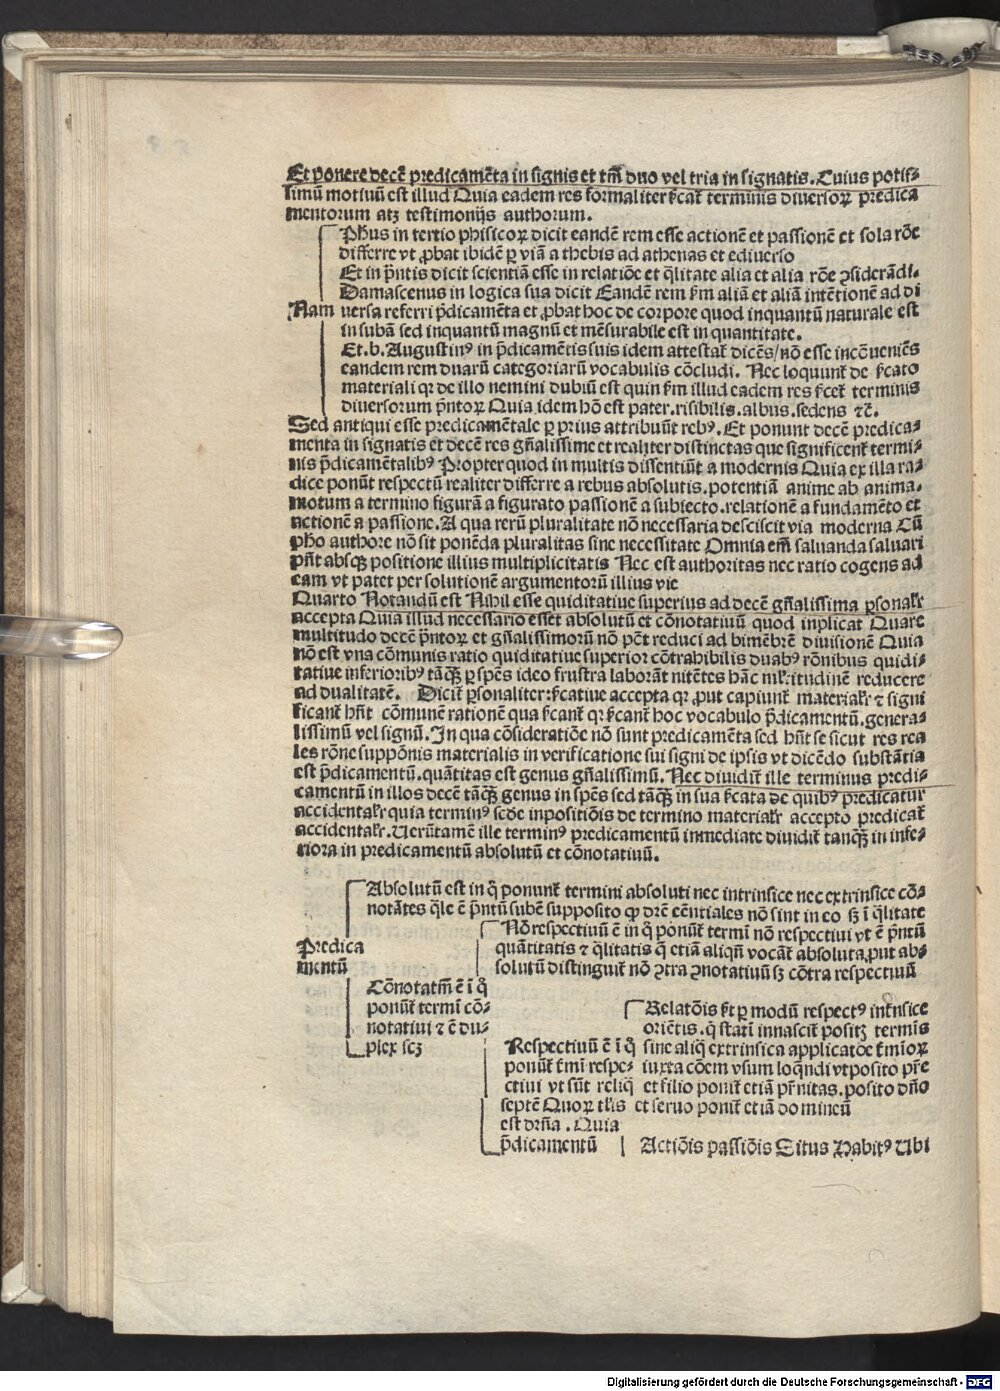 Et ponere decē predicamēta in signis et tm̄ duo vel tria in signatis. Cuius potis⸗
simū motiuū est illud Quia eadem res formaliter ſcat̄ terminis diuersoꝝ predica
mentorum atqꝫ testimonijs authorum.
Phūs in tertio phisicoꝝ dicit eandē rem esse actionē et passionē et sola rōe
differre vt ꝓbat ibidē ꝑ viā a thebis ad athenas et ediuerso
Et in p̄ntis dicit scientiā esse in relatiōe et q̄litate alia et alia rōe ꝯsiderādi.
Damascenus in logica sua dicit Eandē rem ẜm aliā et aliā intētionē ad di
Nam uersa referri p̄dicamēta et ꝓbat hoc de corpore quod inquantū naturale est
in subā sed inquantū magnū et mēsurabile est in quantitate.
Et .b. Augustinꝰ in p̄dicamētis suis idem attestat̄ dicēs/nō esse incōueniēs
eandem rem duarū categoriarū vocabulis cōcludi. Nec loquunt̄ de ſcato
materiali qꝛ de illo nemini dubiū est quin ẜm illud eadem res ſcet̄ terminis
diuersorum p̄ntoꝝ Quia idem hō est pater.risibilis.albus.sedens ⁊c̄.
Sed antiqui esse predicamētale ꝑ prius attribuūt rebꝰ. Et ponunt decē predica⸗
menta in signatis et decē res gn̄alissime et realiter distinctas que significent̄ termi⸗
nis p̄dicamētalibꝰ Propter quod in multis dissentiūt a modernis Quia ex illa ra⸗
dice ponūt respectū realiter differre a rebus absolutis.potentiā anime ab anima.
motum a termino figurā a figurato passionē a subiecto.relationē a fundamēto et
actionē a passione. A qua rerū pluralitate nō necessaria desciscit via moderna Cū
pho authore nō sit ponēda pluralitas sine necessitate Omnia em̄ saluanda saluari
pn̄t absqꝫ positione illius multiplicitatis Nec est authoritas nec ratio cogens ad
eam vt patet per solutionē argumentorū illius vie
Quarto Notandū est Nihil esse quiditatiue superius ad decē gn̄alissima ꝑsonalr̄
accepta Quia illud necessario esset absolutū et cōnotatiuū quod inplicat Quare
multitudo decē p̄ntoꝝ et gn̄alissimorū nō pōt reduci ad bimēbrē diuisionē Quia
nō est vna cōmunis ratio quiditatiue superior cōtrahibilis duabꝰ rōnibus quidi⸗
tatiue inferioribꝰ tāqꝫ ꝑ spēs ideo frustra laborāt nitētes hāc ml̄titudinē reducere
ad dualitatē. Dicit̄ ꝑsonaliter.ſcatiue accepta qꝛ ꝓut capiunt̄ materialr̄ ⁊ signi
ficant hn̄t cōmunē rationē qua ſcant̄ qꝛ ſcant̄ hoc vocabulo p̄dicamentū.genera⸗
lissimū vel signū. In qua cōsideratiōe nō sunt predicamēta sed hn̄t se sicut res rea
les rōne suppōnis materialis in verificatione sui signi de ipsis vt dicēdo substātia
est p̄dicamentū.quātitas est genus gn̄alissimū. Nec diuidit̄ ille terminus predi⸗
camentū in illos decē tāqꝫ genus in spēs sed tāqꝫ in sua ſcata de quibꝰ predicatur
accidentalr̄ quia terminꝰ scd̄e inpositiōis de termino materialr̄ accepto predicat̄
accidentalr̄. Uerūtamē ille terminꝰ predicamentū inmediate diuidit̄ tanqꝫ in infe⸗
riora in predicamentū absolutū et cōnotatiuū.
Absolutū est in q̄ ponunt̄ termini absoluti nec intrinsice nec extrinsice cō⸗
notātes q̄le ē p̄ntū subē supposito ꝙ dr̄e cēntiales nō sint in eo sꝫ ī q̄litate
Nō respectiuū ē in q̄ ponūt̄ termī nō respectiui vt ē p̄ntū
Predica quātitatis ⁊ q̄litatis q̄ etiā aliqn̄ vocāt̄ absoluta ꝓut ab⸗
mentū solutū distinguit̄ nō ꝯtra ꝯnotatiuū sꝫ cōtra respectiuū
Cōnotatiū ē ī q̄
ponūt̄ termī cō⸗ Relatōis ſt ꝑ modū respectꝰ intr̄nsice
notatiui ⁊ ē du⸗ oriētis. q̄ statī innascit̄ positꝫ termīs
plex scꝫ Respectiuū ē ī q̄ sine aliq̄ extrinsica applicatōe t̄mīoꝝ
ponūt̄ t̄mī respe⸗ iuxta cōem vsum loq̄ndi vt posito pr̄e
ctiui vt sūt reliq̄ et filio ponit̄ etiā pr̄nitas. posito dn̄o
septē Quoꝝ tl̄is et seruo ponit̄ etiā dominiū
est dr̄n̄a. Quia
p̄dicamentū Actiōis passiōis Situs Habitꝰ Ubi
Digitalisierung gefördert durch die Deutsche Forschungsgemeinschaft - DFG